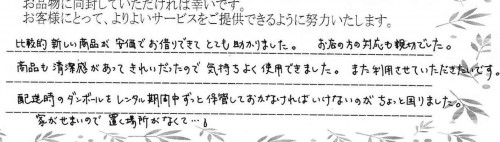 お品物に同封していただければ幸いです。
お客様にとって、よりよいサービスをご提供できるように努力いたします。
比較的 新しい商品が 安価でお借りできて とても助かりました。 お店の方の対応も親切でした。
商品も 清潔感があって きれいだったので 気持ちよく使用できました。 また利用させていただきたいです。
配送時のダンボールを レンタル期間中ずっと保管しておかなければいけないのが ちょっと困りました。
家がせまいので 置く場所がなくて…。